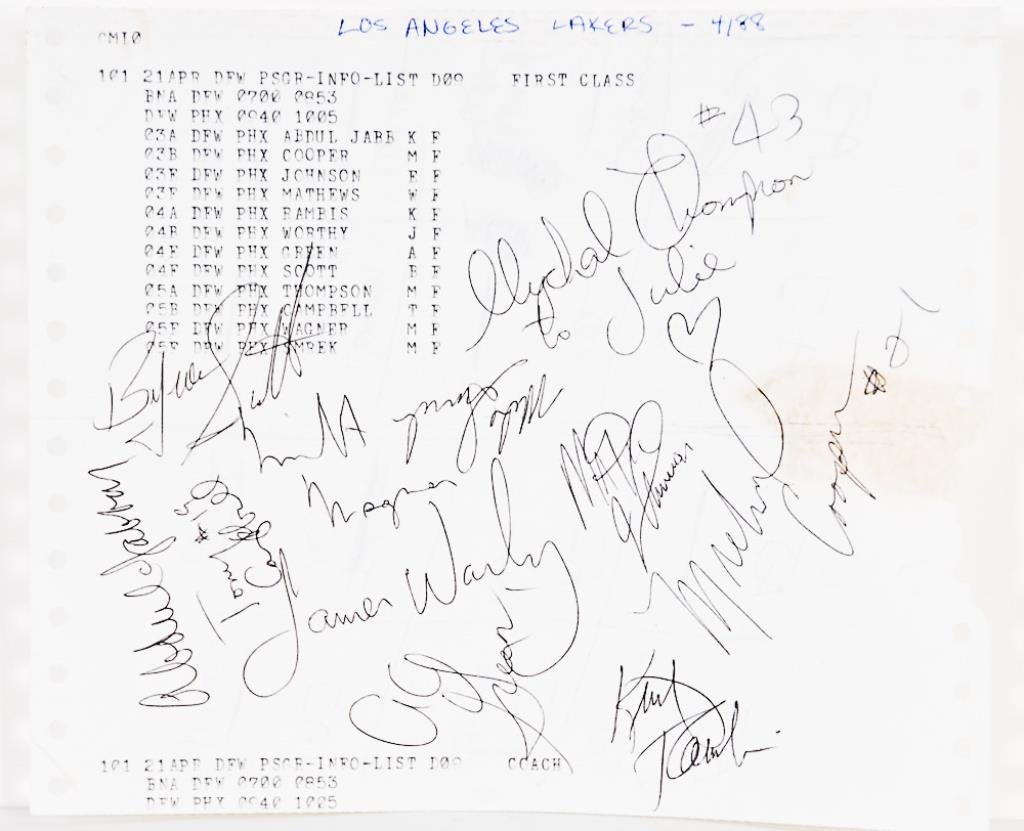 LOS ANGELES LAKERS - 4/88
CMI0
101 21APR DFW PSGR-INFO-LIST D09 FIRST CLASS
BNA DFW 0700 0853
DFW PHX 0940 1005
03A DFW PHX ABDUL JABB K F
03B DFW PHX COOPER M F
03E DFW PHX JOHNSON E F
03F DFW PHX MATHEWS W F
04A DFW PHX RAMBIS K F
04B DFW PHX WORTHY J F
04E DFW PHX GREEN A F
04F DFW PHX SCOTT B F
05A DFW PHX THOMPSON M F
05B DFW PHX CAMPBELL T F
05E DFW PHX WAGNER M F
05F DFW PHX SMREK M F
#43
Mychal Thompson
to Julie
Byron Scott
Milt
Wagner
Mike Smrek
Magic Johnson
Michael Cooper #21
Abdul Jabbar
Tony Campbell #19
James Worthy
AC Green
Kurt Rambis
101 21APR DFW PSGR-INFO-LIST D09 COACH
BNA DFW 0700 0853
DFW PHX 0940 1005